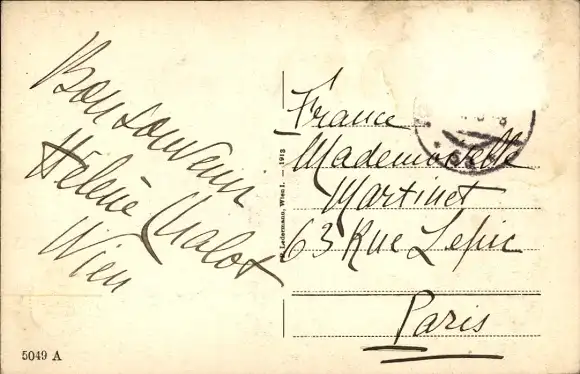 Bon souvenir
Hélène Malot
Wien
France
Mademoiselle
Martinet
63 Rue Lepic
Paris
Ledermann, Wien I. — 1913
5049 A